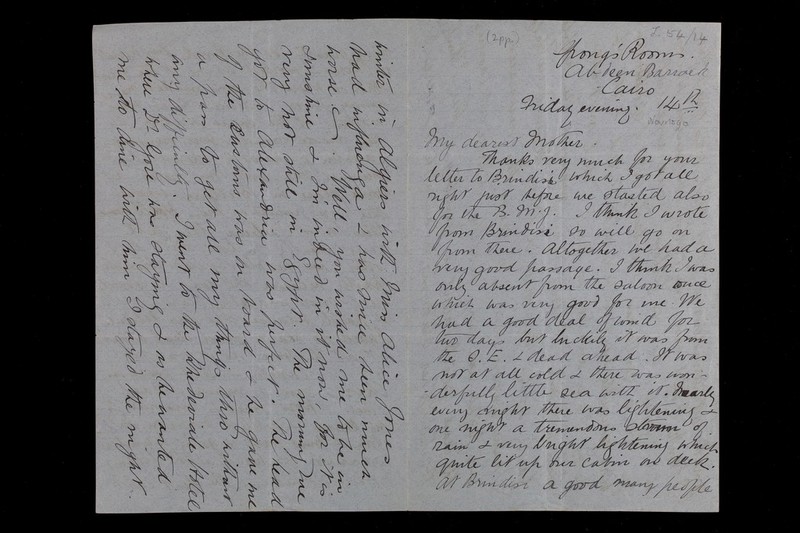 (2pp.)
Z 54/14
Rooms.
Abdeen Barrack
Cairo
Friday evening. 14th
My dearest Mother.
Thanks very much for your
letter to Brindisi which I got all
right just before we started also
for the B.M.J. I think I wrote
from Brindisi so will go on
from there. Altogether we had a
very good passage. I think I was
only absent from the saloon once
which was very good for me. We
had a good deal of wind for
two days but luckily it was from
the S.E. & dead ahead. It was
not at all cold & there was won-
derfully little sea with it. Nearly
every night there was lightening &
one night a tremendous storm of
rain & very bright lightening which
quite lit up our cabin on deck.
At Brindisi a good many people
winter in Algiers with Miss Alice Jones
had influenza & has since been much
worse. Well you wished me to be in
sunshine & I'm indeed in it now, for it is
very hot still in Egypt. The morning we
got to Alexandria was perfect. The head
of the Customs was on board & he gave me
a pass to get all my things thro' without
any difficulty. I went to the Khedivial Hotel
where Dr. was staying & as he wanted
me to dine with him I stayed the night.